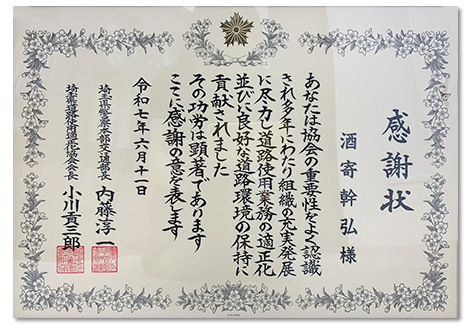 感謝状
酒寄幹弘様
あなたは協会の重要性をよく認識
され多年にわたり組織の充実発展
に尽力し道路使用業務の適正化
並びに良好な道路環境の保持に
貢献されました
その功労は顕著であります
ここに感謝の意を表します
令和七年六月十一日
埼玉県警察本部交通部長 内藤淳一
埼玉県道路使用適正化協会会長 小川貢三郎